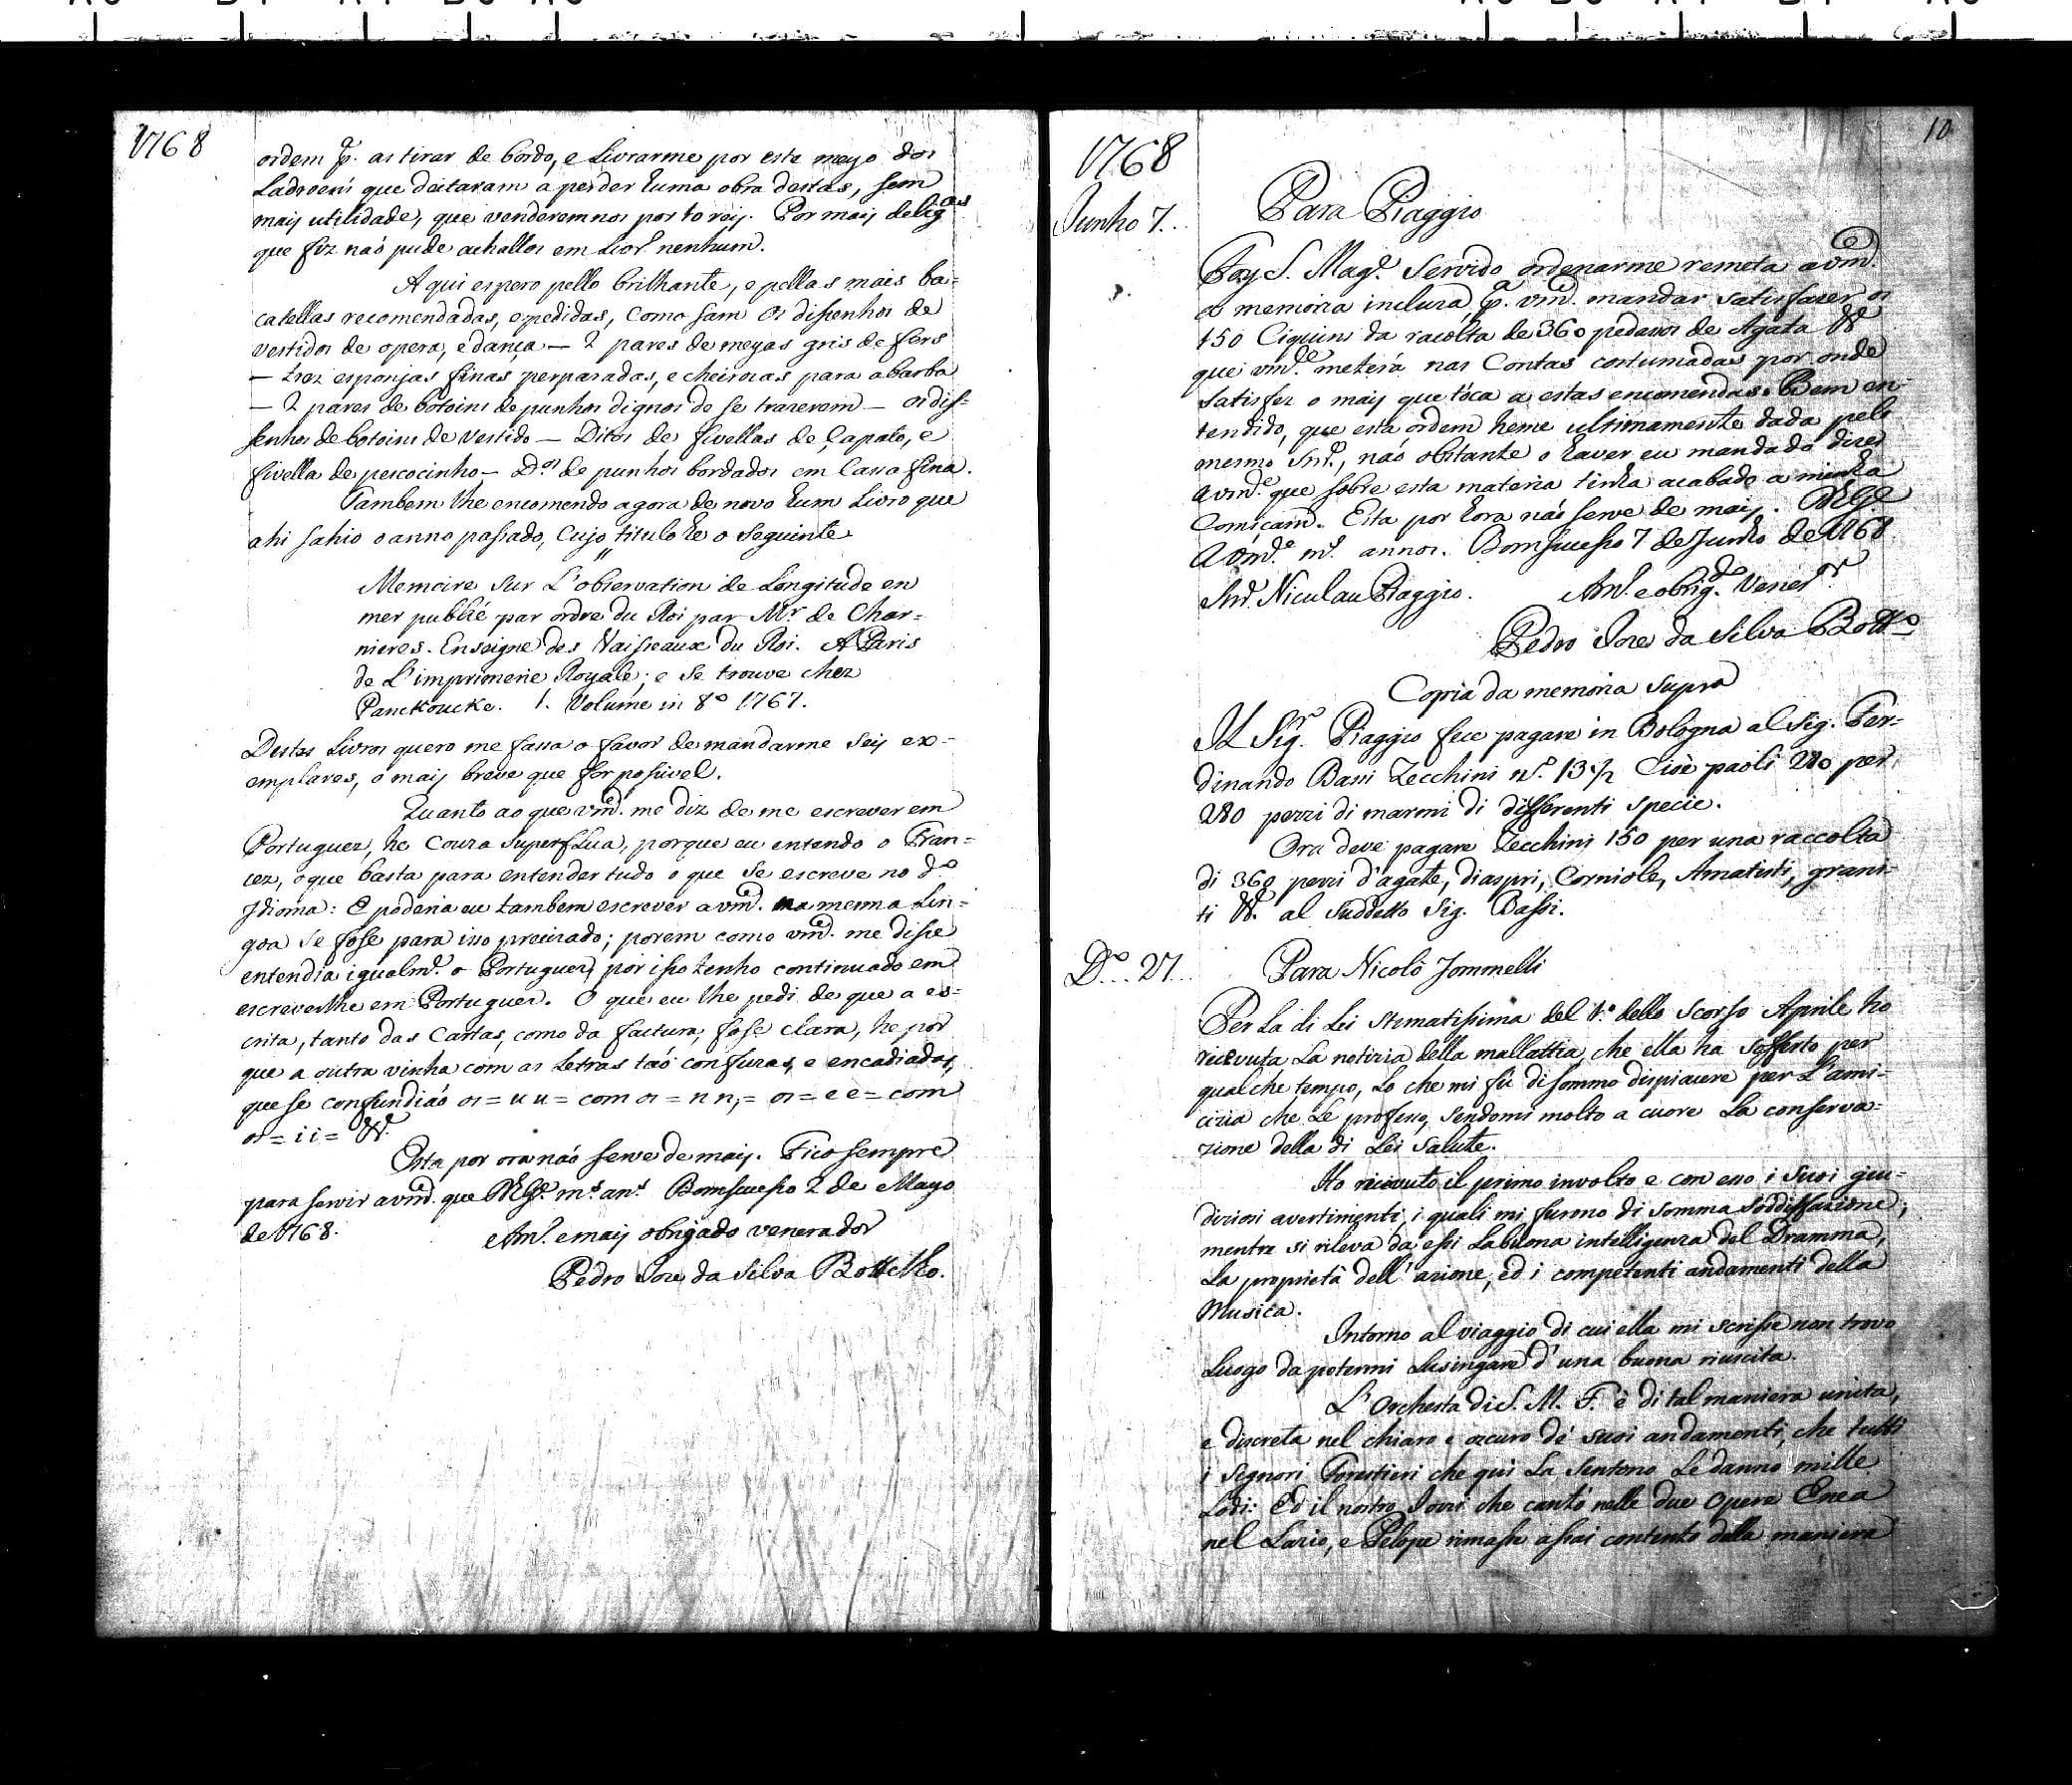 1768
ordem p.ª as tirar de bordo, e Livrarme por este meyo dos
Ladroens que deitaram a perder huma obra destas, sem
mais utilidade, que venderemnos por to reis. Por mais delig.ᵃˢ
que fiz naó pude achallos em Lior.ⁿᵉ nenhum.
Aqui espero pello brilhante, e pellas mais ba=
catellas recomendadas, e pedidas, como sam os dissenhos de
vestidos de opera, e dança — 2 pares de meyas gris de fers
— trez esponjas finas perparadas, e cheirozas para a barba
— 2 pares de botoins de punhos dignos de se trazerem — os dis=
senhos de botoins de vestido — Ditos de fivellas de çapato, e
fivella de pescocinho — D.ᵒˢ de punhos bordados em Cassa fina.
Tambem lhe encomendo agora de novo hum Livro que
ahi sahio o anno passado, Cujo titulo he o seguinte
Memoire sur L'observation de Longitude en
mer publié par ordre du Roi par M.ʳ de Char=
nieres. Enseigne des Vaisseaux du Roi. A Paris
de L'imprimerie Royale; e se trouve chez
Panckoucke. 1. Volume in 8º 1767.
Destes Livros quero me fassa o favor de mandarme seis ex=
emplares, o mais breve que for possivel.
Quanto ao que vm.ᶜᵉ me diz de me escrever em
Portuguez, he couza superflua, porque eu entendo o Fran=
cez, o que basta para entender tudo o que se escreve no d.º
Idioma: E poderia eu tambem escrever a vm.ᶜᵉ na mesma Lin=
goa se fose para isso precizado; porem como vm.ᶜᵉ me disse
entendia igualm.ᵉ o Portuguez, por isso tenho continuado em
escreverlhe em Portuguez. O que eu lhe pedi de que a es=
crita, tanto das Cartas, como da factura, fose clara, he por
que a outra vinha com as Letras taó confuzas, e encadiadas,
que se confundiaó os = u u = com os = n n, = os = e e = com
os = i i = &.ᵃ
Esta por ora naó serve de mais. Fico sempre
para servir a vm.ᶜᵉ que D.ˢ G.ᵉ m.ˢ an.ˢ Bomsucesso 2 de Mayo
de 1768.
Am.º e mais obrigado venerador
Pedro Joze da Silva Bottelho.
10
1768
Junho 7.
Para Piaggio
Foy S. Mag.ᵉ Servido ordenarme remeta a vm.ᶜᵉ
a memoria incluza, p.ª vm.ᶜᵉ mandar satisfazer os
150 Ciquins da racolta de 360 pedasos de Agata &.ᵃ
que vm.ᶜᵉ meterá nas Contas costumadas por onde
satisfez o mais que tóca a estas encomendas. Bem en=
tendido, que esta ordem heme ultimamente dada pelo
mesmo Snr.ᵉ, naó obstante o haver eu mandado dizer
a vm.ᶜᵉ que sobre esta materia tinha acabado a minha
Comicam. Esta por hora naó serve de mais. D.ˢ G.ᵉ
a vm.ᶜᵉ m.ˢ annos. Bomsucesso 7 de Junho de 1768
Snr. Niculau Piaggio. Am.º e obrig.ᵈᵒ Vener.ᵒʳ
Pedro Joze da Silva Bott.º
Copia da memoria supra
Il Sig.ʳᵉ Piaggio fece pagare in Bologna al Sig. Fer=
dinando Bassi Zecchini n.º 13½ Cioè paoli 280 per
280 pezzi di marmi di differenti specie.
Ora deve pagare Zecchini 150 per una raccolta
di 360 pezzi d'agate, diaspri, Corniole, Amatisti, grani=
ti &.ᵃ al suddetto Sig. Bassi.
D.º 27.
Para Nicolò Jommelli
Per La di Lei stimatissima del 1.º dello scorso Aprile ho
ricevuta La notizia della mallattia, che ella ha sofferto per
qualche tempo, Lo che mi fù di sommo dispiacere per L'ami=
cizia che Le professo, sendomi molto a cuore La conserva=
zione della di Lei salute.
Ho ricevuto il primo involto e con esso i suoi giu=
diziosi avertimenti, i quali mi furono di somma soddisfazione;
mentre si rileva da essi La buona intelligenza del Dramma,
La proprietà dell' azione, ed i competenti andamenti della
Musica.
Intorno al viaggio di cui ella mi scrisse non trovo
Luogo da potermi Lusingare d'una buona riuscita.
L'Orchesta di S. M. F. è di tal maniera unita,
e discreta nel chiaro e oscuro de' suoi andamenti, che tutti
i Signori Forestieri che quì La sentono Le danno mille
Lodi: Ed il nostro che cantò nelle due Opere Enea
nel Lazio, e Pelope rimase assai contento della maniera